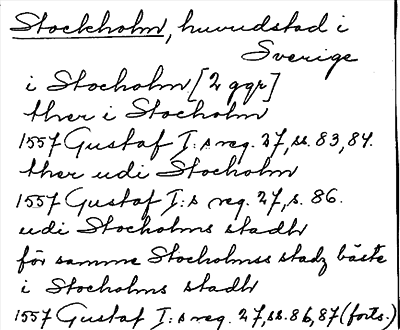 Stockholm, huvudstad i
Sverige
i Stocholm [2 ggr]
ther i Stocholm
1557 Gustaf I:s reg. 27, ss. 83, 84.
ther udi Stocholm
1557 Gustaf I:s reg. 27, s. 86.
udi Stocholms stadh
för samme Stocholmss stadz bäste
i Stocholms stadh
1557 Gustaf I:s reg. 27, ss. 86, 87 (forts.)